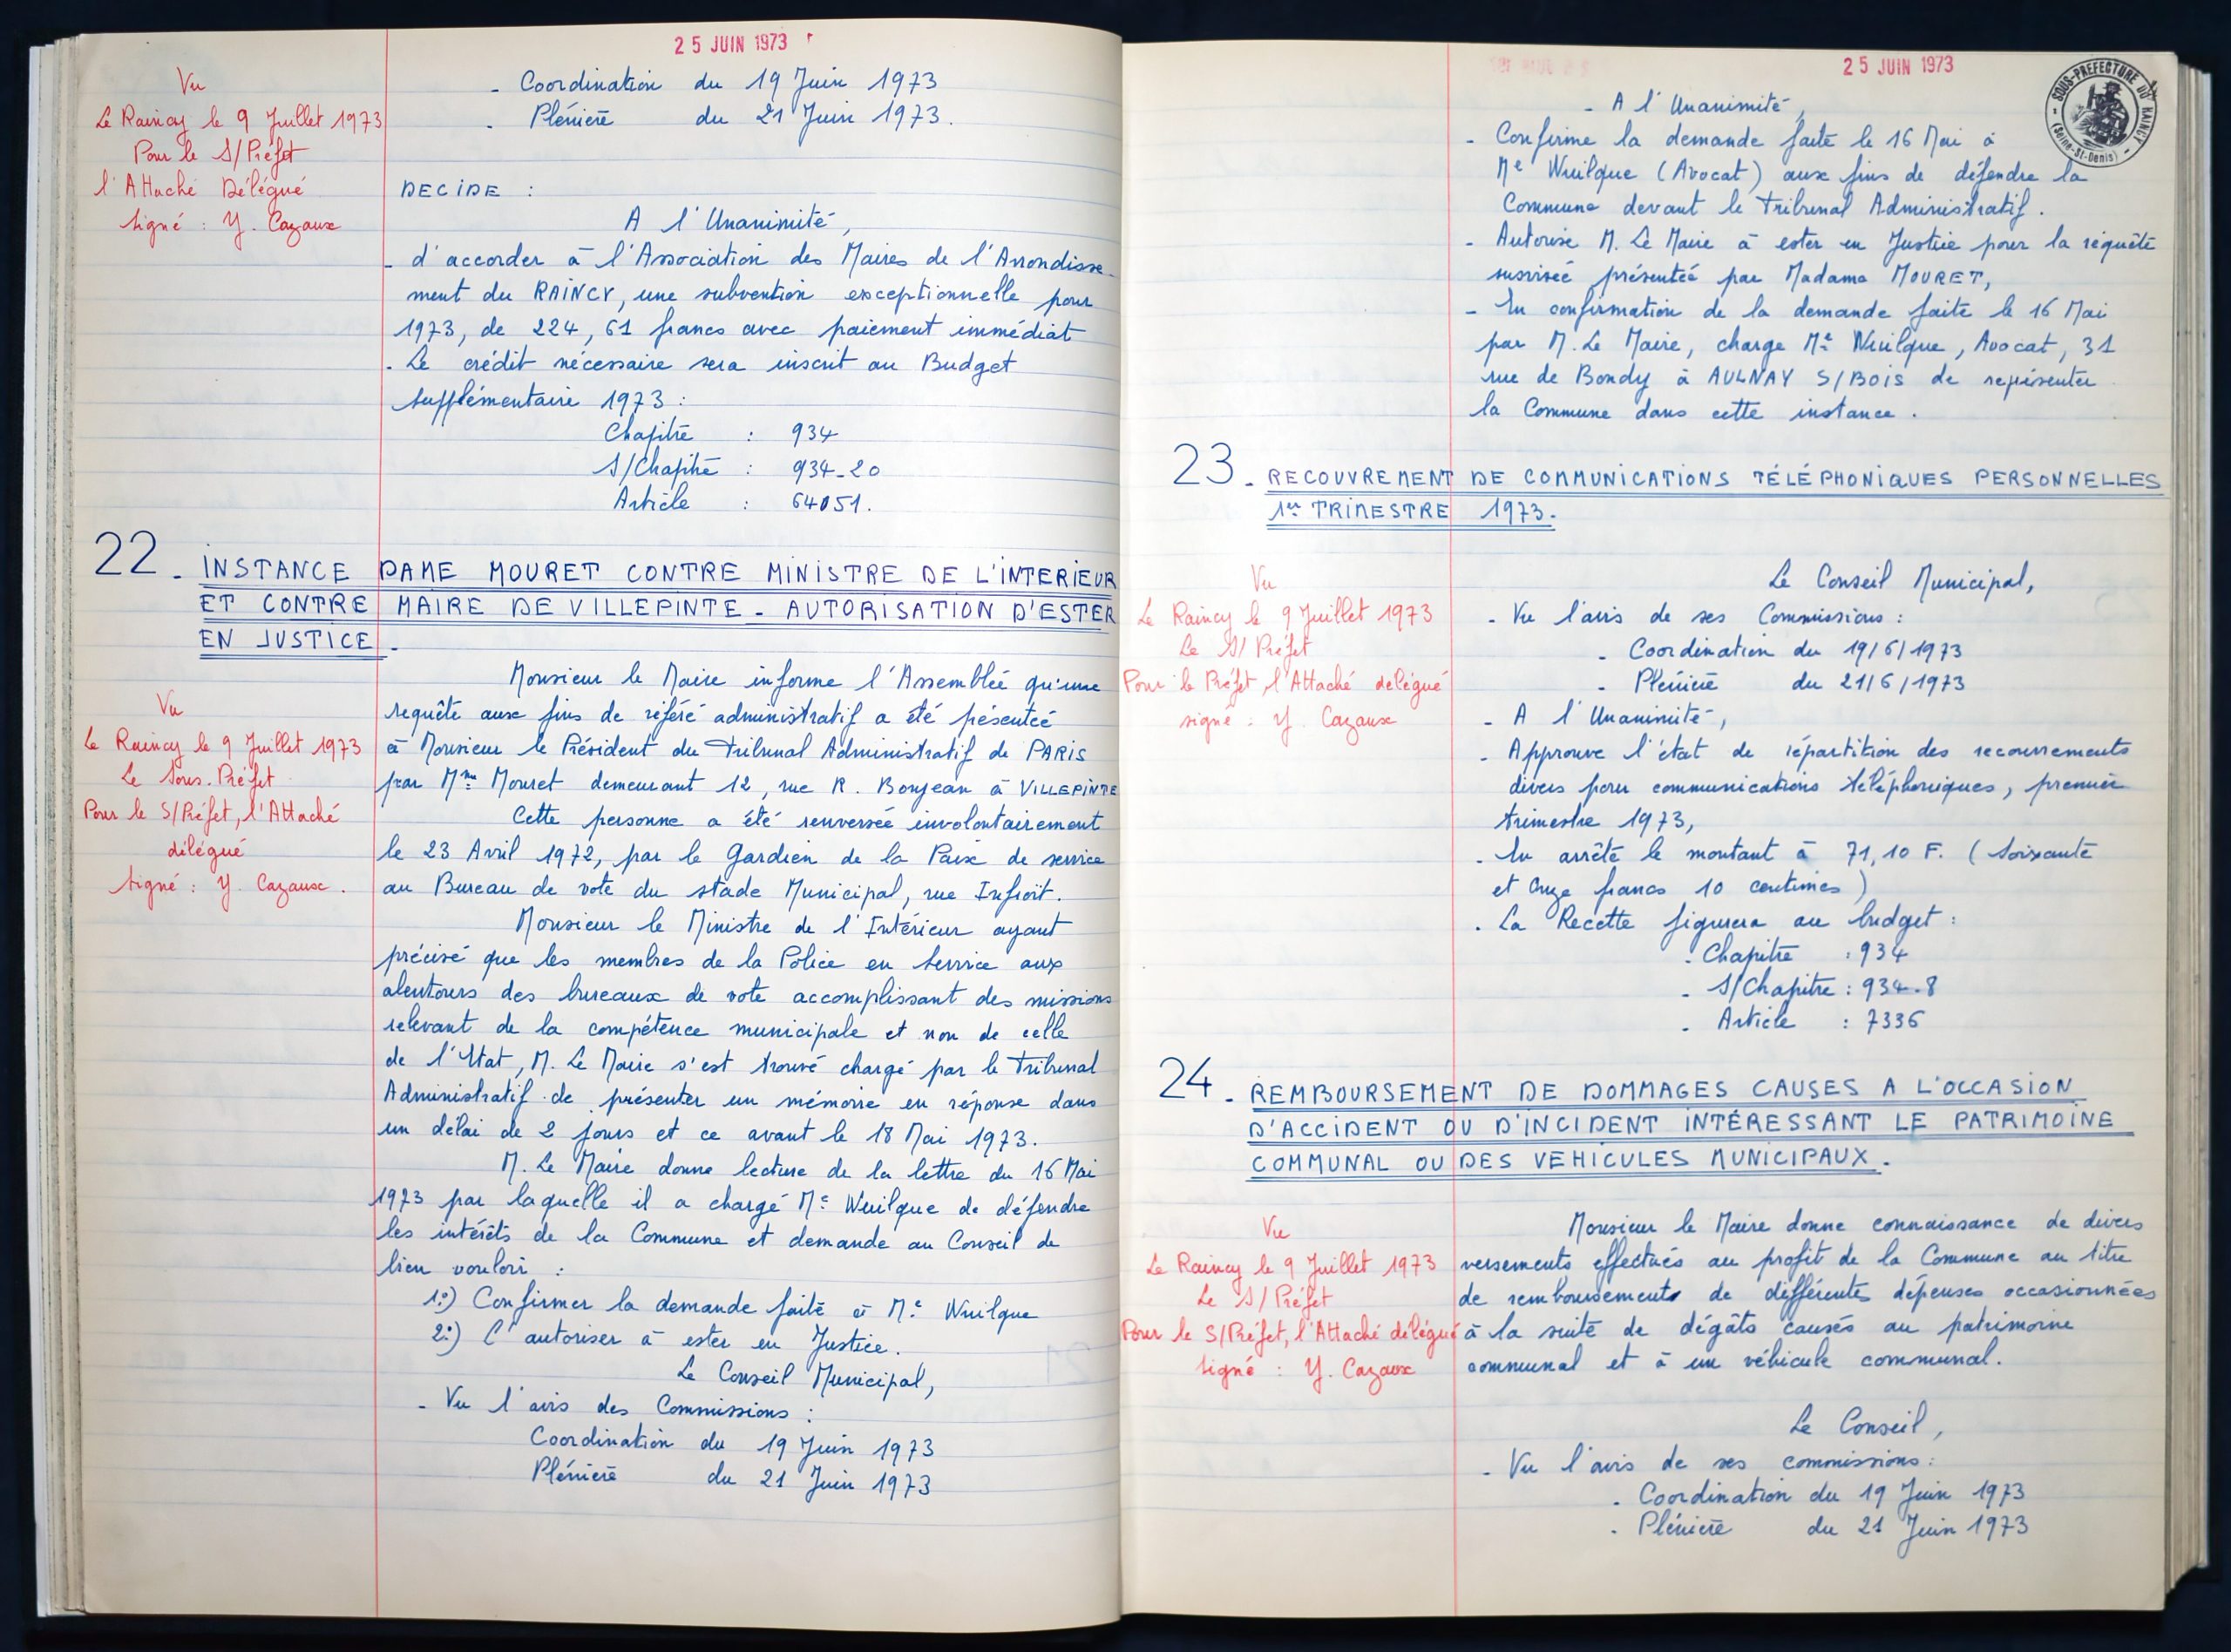 25 JUIN 1973
Vu
Le Raincy le 9 Juillet 1973
Pour le S/Préfet
l'Attaché Délégué
Signé : Y. Cazaux
- Coordination du 19 Juin 1973
- Plénière du 21 Juin 1973.
DECIDE :
A l'Unanimité,
- d'accorder à l'Association des Maires de l'Arrondisse-
ment du RAINCY, une subvention exceptionnelle pour
1973, de 224,61 francs avec paiement immédiat
- Le crédit nécessaire sera inscrit au Budget
Supplémentaire 1973 :
Chapitre : 934
S/Chapitre : 934-20
Article : 64051.
22 - INSTANCE DAME MOURET CONTRE MINISTRE DE L'INTERIEUR
ET CONTRE MAIRE DE VILLEPINTE - AUTORISATION D'ESTER
EN JUSTICE.
Vu
Le Raincy le 9 Juillet 1973
Le Sous-Préfet
Pour le S/Préfet, l'Attaché
délégué
Signé : Y. Cazaux.
Monsieur le Maire informe l'Assemblée qu'une
requête aux fins de référé administratif a été présentée
à Monsieur le Président du Tribunal Administratif de PARIS
par Mme Mouret demeurant 12, rue R. Bonjean à VILLEPINTE
Cette personne a été renversée involontairement
le 23 Avril 1972, par le Gardien de la Paix de service
au Bureau de vote du stade Municipal, rue Infroit.
Monsieur le Ministre de l'Intérieur ayant
précisé que les membres de la Police en Service aux
alentours des bureaux de vote accomplissant des missions
relevant de la compétence municipale et non de celle
de l'Etat, M. Le Maire s'est trouvé chargé par le Tribunal
Administratif de présenter un mémoire en réponse dans
un délai de 2 jours et ce avant le 18 Mai 1973.
M. Le Maire donne lecture de la lettre du 16 Mai
1973 par laquelle il a chargé Me Wuilque de défendre
les intérêts de la Commune et demande au Conseil de
bien vouloir :
1°) Confirmer la demande faite à Me Wuilque
2°) L'autoriser à ester en Justice.
Le Conseil Municipal,
- Vu l'avis des Commissions :
Coordination du 19 Juin 1973
Plénière du 21 Juin 1973
25 JUIN 1973
SOUS-PREFECTURE DU RAINCY
(Seine-St-Denis)
- A l'Unanimité,
- Confirme la demande faite le 16 Mai à
Me Wuilque (Avocat) aux fins de défendre la
Commune devant le Tribunal Administratif.
- Autorise M. Le Maire à ester en Justice pour la requête
susvisée présentée par Madame MOURET,
- En confirmation de la demande faite le 16 Mai
par M. Le Maire, charge Me Wuilque, Avocat, 31
rue de Bondy à AULNAY S/BOIS de représenter
la Commune dans cette instance.
23 - RECOUVREMENT DE COMMUNICATIONS TÉLÉPHONIQUES PERSONNELLES
1er TRIMESTRE 1973.
Vu
Le Raincy le 9 Juillet 1973
Le S/Préfet
Pour le Préfet l'Attaché délégué
signé : Y. Cazaux
Le Conseil Municipal,
- Vu l'avis de ses Commissions :
- Coordination du 19/6/1973
- Plénière du 21/6/1973
- A l'Unanimité,
- Approuve l'état de répartition des recouvrements
divers pour communications téléphoniques, premier
trimestre 1973,
- En arrête le montant à 71,10 F. (Soixante
et Onze francs 10 centimes)
- La Recette figurera au budget :
- Chapitre : 934
- S/Chapitre : 934-8
- Article : 7336
24 - REMBOURSEMENT DE DOMMAGES CAUSES A L'OCCASION
D'ACCIDENT OU D'INCIDENT INTÉRESSANT LE PATRIMOINE
COMMUNAL OU DES VEHICULES MUNICIPAUX.
Vu
Le Raincy le 9 Juillet 1973
Le S/Préfet
Pour le S/Préfet, l'Attaché délégué
Signé : Y. Cazaux
Monsieur le Maire donne connaissance de divers
versements effectués au profit de la Commune au titre
de remboursements de différentes dépenses occasionnées
à la suite de dégâts causés au patrimoine
communal et à un véhicule communal.
Le Conseil,
- Vu l'avis de ses commissions :
- Coordination du 19 Juin 1973
- Plénière du 21 Juin 1973